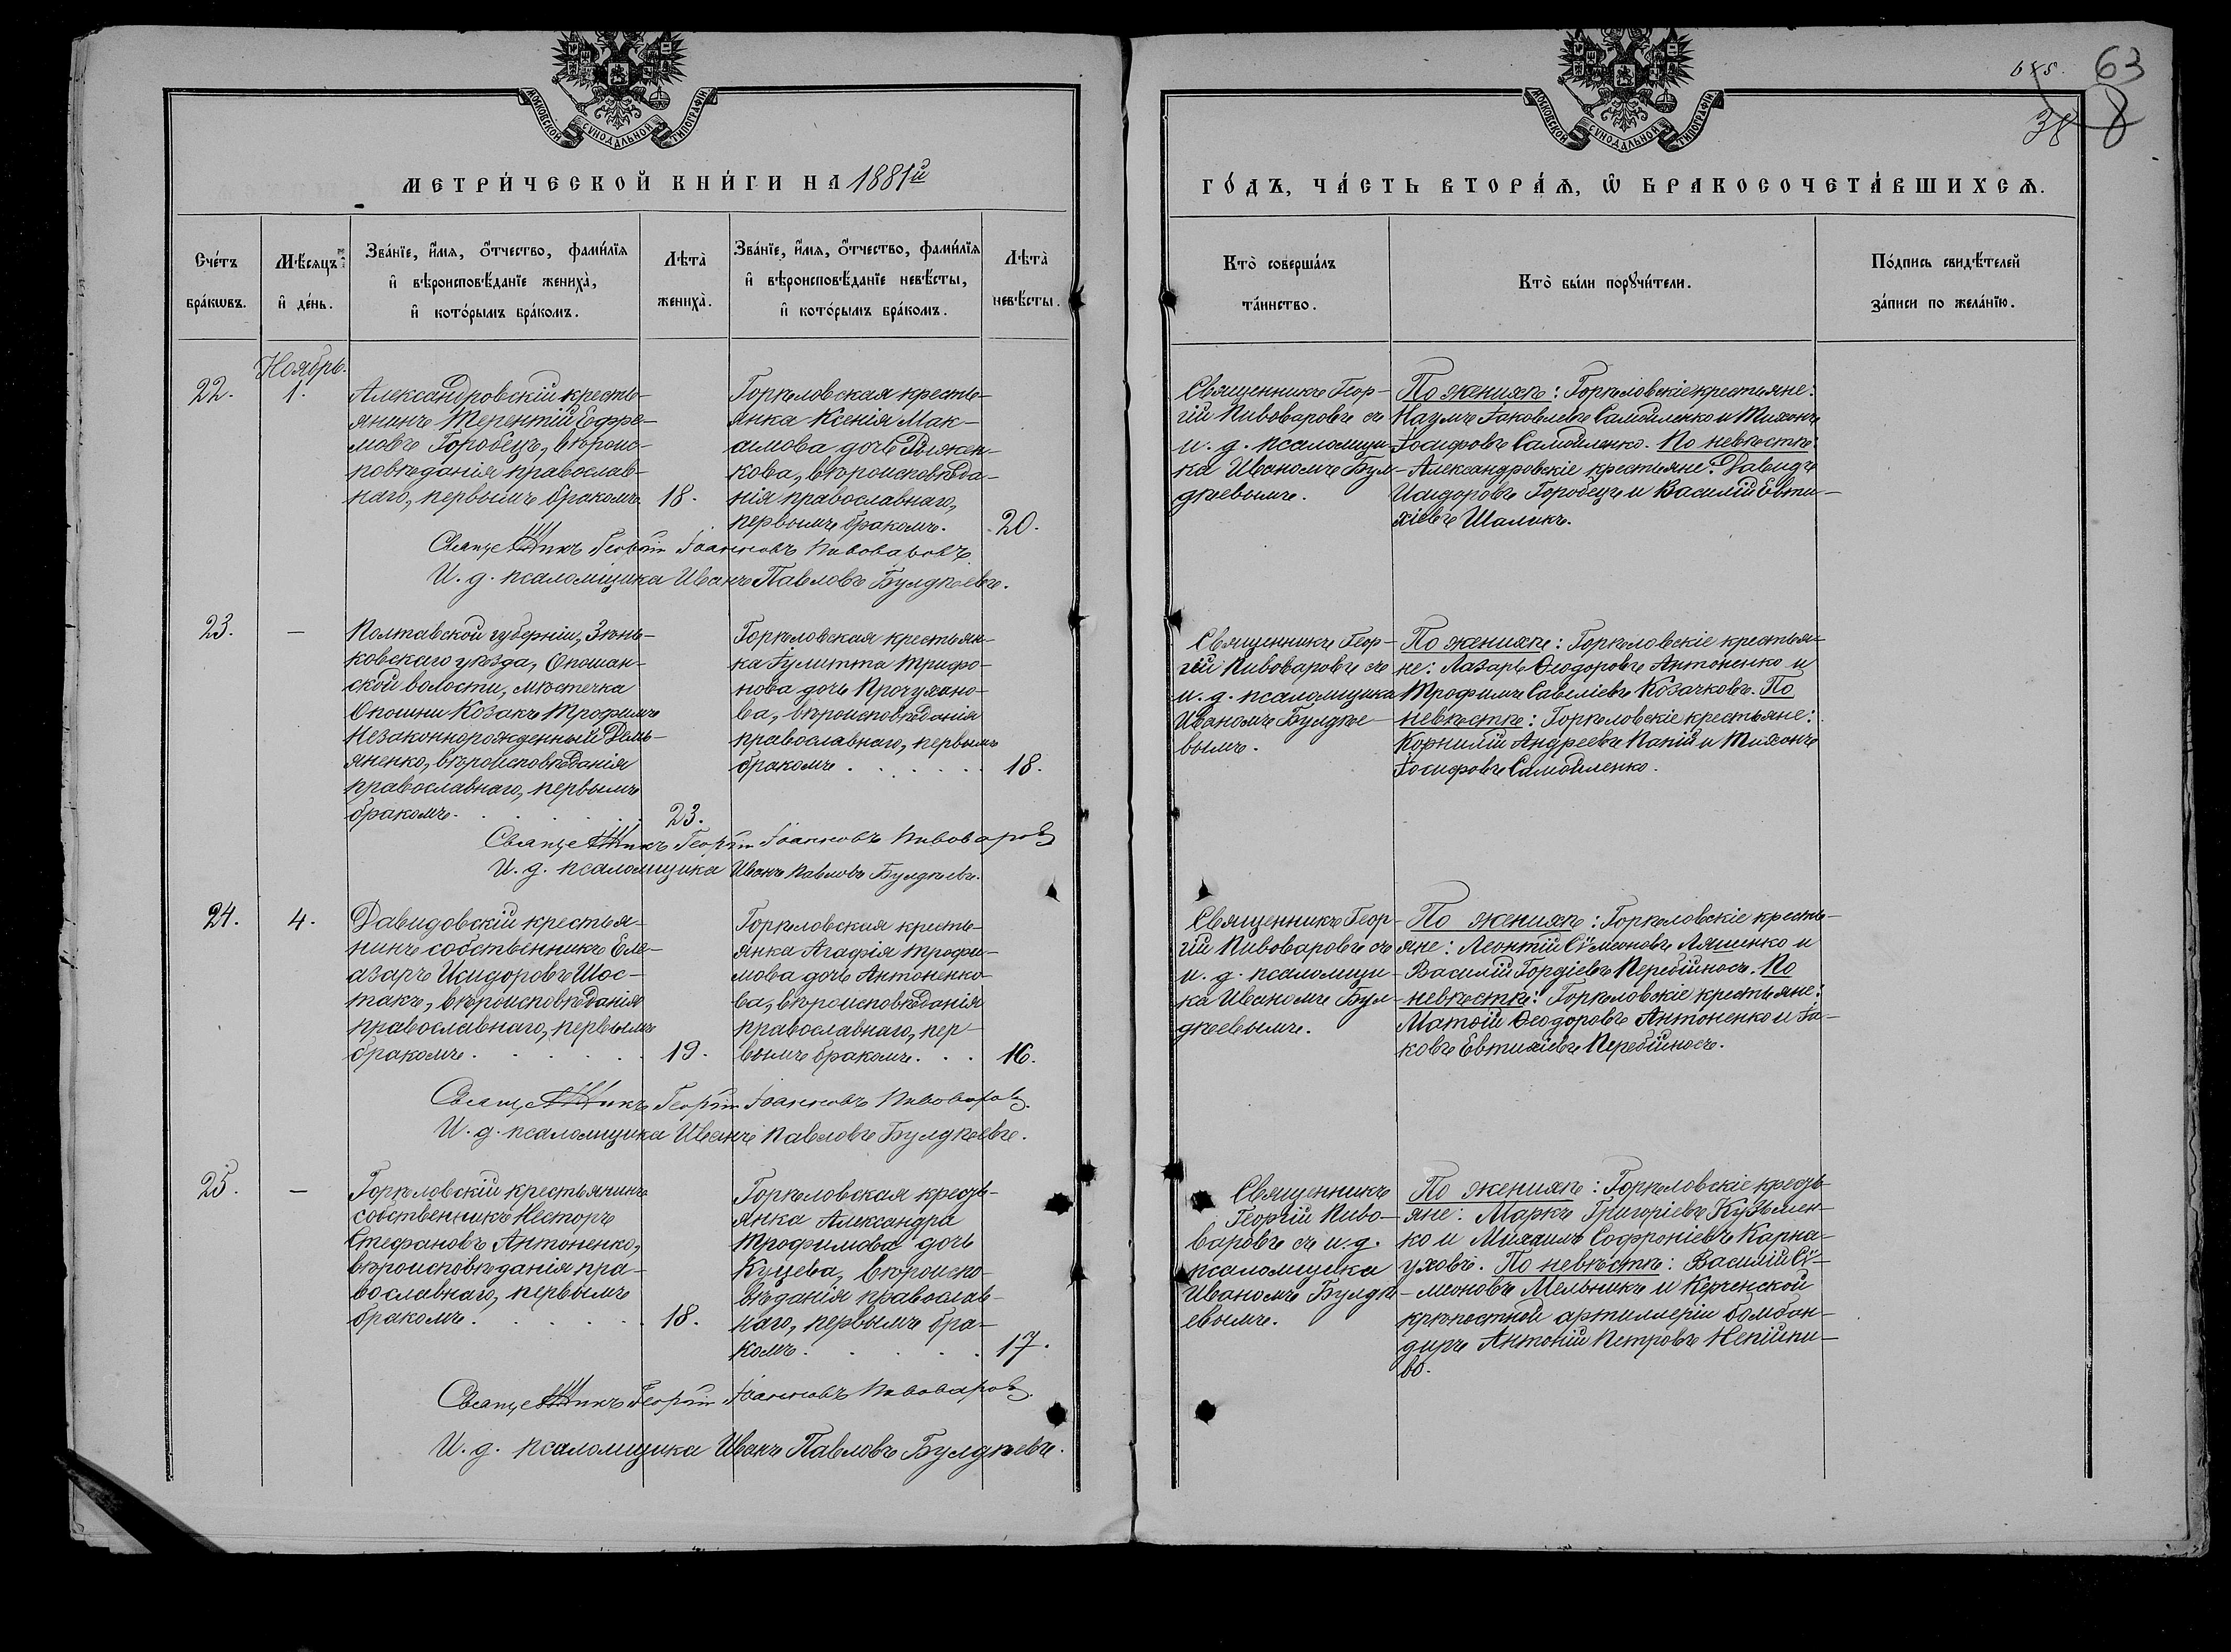 МОСКОВСКОЙ СѴНОДАЛЬНОЙ ТИПОГРАФІИ
МЕТРИ́ЧЕСКОЙ КНИ́ГИ НА 1881й
Сче́тъ бра́кωвъ.
Мѣ́сяцъ и҆ де́нь.
Зва́нїе, и҆́мя, ѻ҆́тчество, фами́лїя
и҆ вѣроисповѣ́данїе жениха̀,
и҆ кото́рымъ бра́комъ.
Лѣта̀ жениха̀.
Зва́нїе, и҆́мя, ѻ҆́тчество, фами́лїя
и҆ вѣроисповѣ́данїе невѣ́сты,
и҆ кото́рымъ бра́комъ.
Лѣта̀ невѣ́сты.
Ноябрь.
22.
1.
Александровскій кресть-
янинъ Терентій Ефре-
мовъ Горобецъ, вѣроис-
повѣданія православ-
наго, первымъ бракомъ. 18.
Горѣловская кресть-
янка Ксенія Мак-
симова дочь Рыжен-
кова, вѣроисповѣда-
нія православнаго,
первымъ бракомъ. 20.
Священникъ Георгій Іоанновъ Пивоваровъ
И. д. псаломщика Иванъ Павловъ Булдѣевъ.
23.
—
Полтавской губерніи, Зѣнь-
ковскаго уѣзда, Опошан-
ской волости, мѣстечка
Опошни Козакъ Трофимъ
Незаконнорожденный Демь-
яненко, вѣроисповѣданія
православнаго, первымъ
бракомъ. 23.
Горѣловская крестьян-
ка Іулитта Трифо-
нова дочь Прочухано-
ва, вѣроисповѣданія
православнаго, первымъ
бракомъ 18.
Священникъ Георгій Іоанновъ Пивоваровъ
И. д. псаломщика Иванъ Павловъ Булдѣевъ.
24.
4.
Давидовскій крестья-
нинъ собственникъ Еле-
азаръ Исидоровъ Шос-
такъ, вѣроисповѣданія
православнаго, первымъ
бракомъ 19.
Горѣловская кресть-
янка Агафія Трофи-
мова дочь Антоненко-
ва, вѣроисповѣданія
православнаго, пер-
вымъ бракомъ. 16.
Священникъ Георгій Іоанновъ Пивоваровъ
И. д. псаломщика Иванъ Павловъ Булдѣевъ.
25.
—
Горѣловскій крестьянинъ
собственникъ Несторъ
Стефановъ Антоненко,
вѣроисповѣданія пра-
вославнаго, первымъ
бракомъ 18.
Горѣловская кресть-
янка Александра
Трофимова дочь
Куцева, вѣроиспо-
вѣданія православ-
наго, первымъ бра-
комъ 17.
Священникъ Георгій Іоанновъ Пивоваровъ
И. д. псаломщика Иванъ Павловъ Булдѣевъ.
63
38
МОСКОВСКОЙ СѴНОДАЛЬНОЙ ТИПОГРАФІИ
ГО́ДЪ, ЧА́СТЬ ВТОРА́Ѧ, Ѡ҆ БРАКОСОЧЕТА́ВШИХСѦ.
Кто̀ соверша́лъ та́инство.
Кто̀ бы́ли порꙋчи́тели.
По́дпись свидѣ́телей за́писи по жела́нїю.
Священникъ Геор-
гій Пивоваровъ съ
и. д. псаломщи-
ка Иваномъ Бул-
дѣевымъ.
По женихѣ: Горѣловскіе крестьяне:
Наумъ Іаковлевъ Самойленко и Тихонъ
Іосифовъ Самойленко. По невѣстѣ:
Александровскіе крестьяне: Давидъ
Исидоровъ Горобецъ и Василій Евти-
хіевъ Шаликъ.
Священникъ Геор-
гій Пивоваровъ съ
и. д. псаломщика
Иваномъ Булдѣе-
вымъ.
По женихѣ: Горѣловскіе крестья-
не: Лазарь Ѳеодоровъ Антоненко и
Трофимъ Савеліевъ Козачковъ. По
невѣстѣ: Горѣловскіе крестьяне:
Корнилій Андреевъ Папій и Тихонъ
Іосифовъ Самойленко.
Священникъ Геор-
гій Пивоваровъ съ
и. д. псаломщи-
ка Иваномъ Бул-
дѣевымъ.
По женихѣ: Горѣловскіе кресть-
яне: Леонтій Сѵмеоновъ Ляшенко и
Василій Гордіевъ Перебійносъ. По
невѣстѣ: Горѣловскіе крестьяне:
Матѳій Ѳеодоровъ Антоненко и Іа-
ковъ Евтихіевъ Перебійносъ.
Священникъ
Георгій Пиво-
варовъ съ и. д.
псаломщика
Иваномъ Булдѣ-
евымъ.
По женихѣ: Горѣловскіе кресть-
яне: Маркъ Григоріевъ Кузьмен-
ко и Михаилъ Софроніевъ Карна-
уховъ. По невѣстѣ: Василій Сѵ-
меоновъ Мельникъ и Керченской
крѣпостной артиллеріи бомбан-
диръ Антоній Петровъ Непійпи-
во.